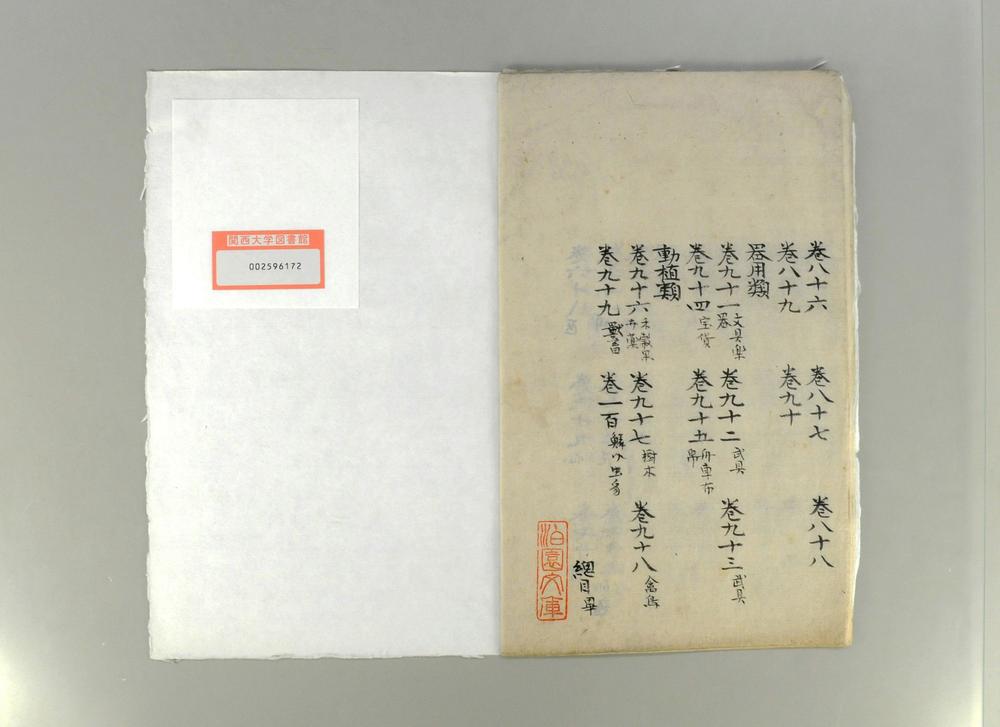 関西大学図書館
002596172
巻八十六 巻八十七 巻八十八
巻八十九 巻九十
器用類
巻九十一 文具楽器 巻九十二 武具 巻九十三 武具
巻九十四 宝貨 巻九十五 舟車布帛
動植類
巻九十六 禾穀果 巻九十七 樹木 巻九十八 禽鳥
巻九十九 獣畜 巻一百
總目畢
泊園文庫